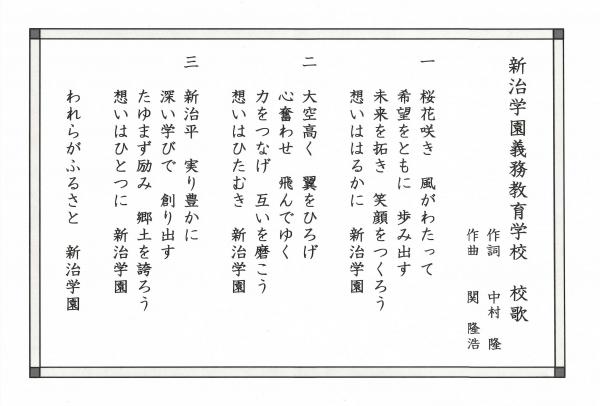 新治学園義務教育学校　校歌
作詞　中村　隆
作曲　関　隆浩
一　桜花咲き　風がわたって
希望をともに　歩み出す
未来を拓き　笑顔をつくろう
想いははるかに　新治学園
二　大空高く　翼をひろげ
心奮わせ　飛んでゆく
力をつなげ　互いを磨こう
想いはひたむき　新治学園
三　新治平　実り豊かに
深い学びで　創り出す
たゆまず励み　郷土を誇ろう
想いはひとつに　新治学園
われらがふるさと　新治学園